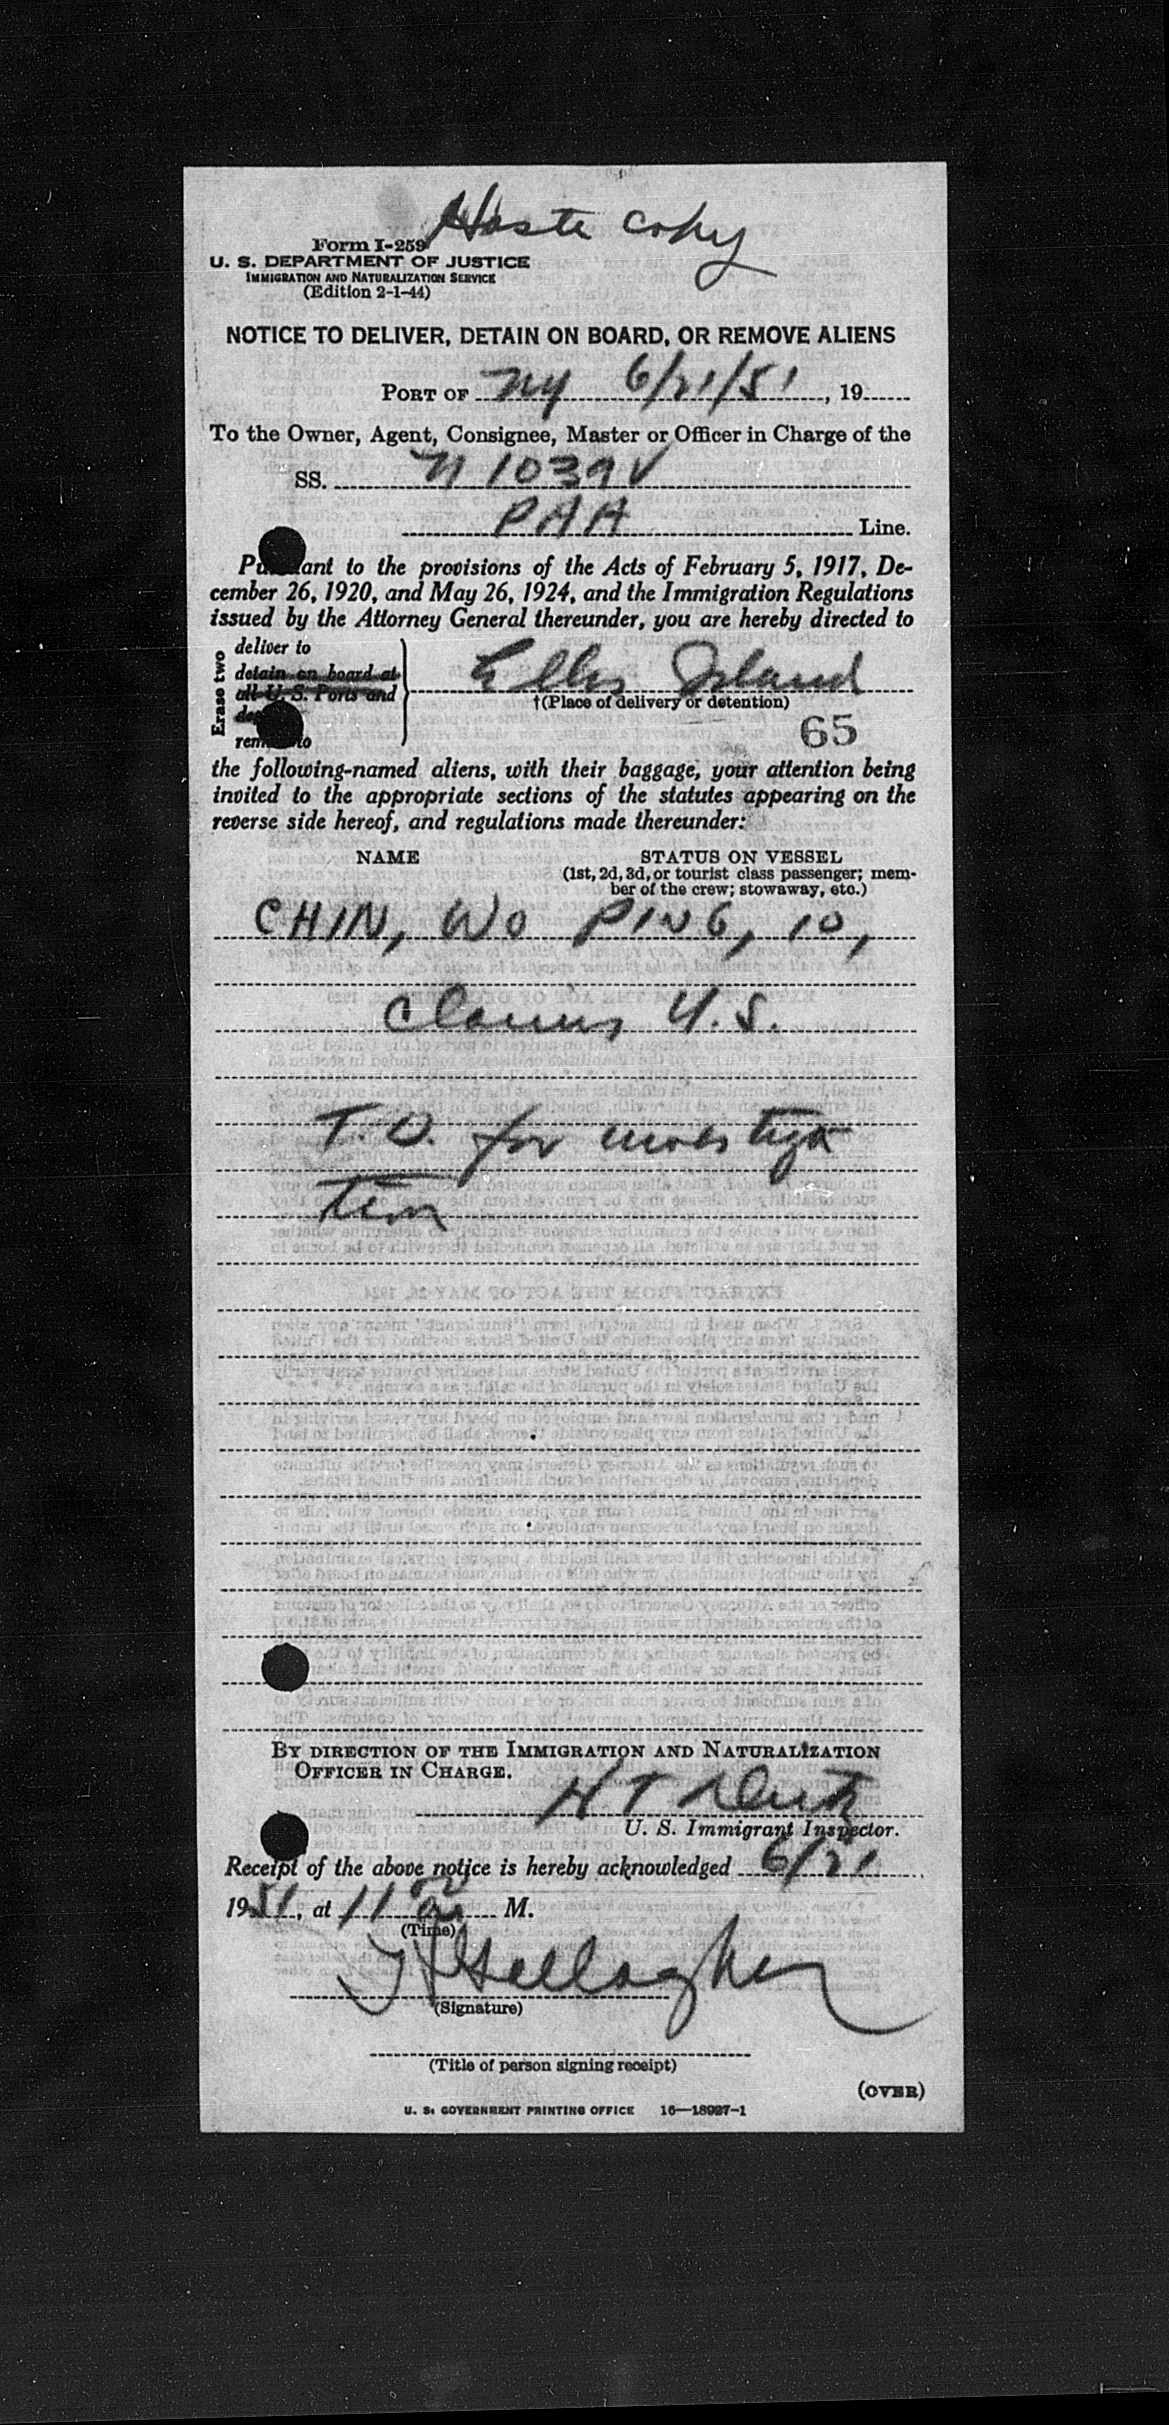 Haste copy
Form I-259
U. S. DEPARTMENT OF JUSTICE
IMMIGRATION AND NATURALIZATION SERVICE
(Edition 2-1-44)
NOTICE TO DELIVER, DETAIN ON BOARD, OR REMOVE ALIENS
PORT OF NY 6/21/51, 19
To the Owner, Agent, Consignee, Master or Officer in Charge of the
SS. N 1039V
PAA Line.
Pursuant to the provisions of the Acts of February 5, 1917, De-
cember 26, 1920, and May 26, 1924, and the Immigration Regulations
issued by the Attorney General thereunder, you are hereby directed to
Erase two
deliver to
detain on board at
all U. S. Ports and
remove to
Ellis Island
†(Place of delivery or detention)
65
the following-named aliens, with their baggage, your attention being
invited to the appropriate sections of the statutes appearing on the
reverse side hereof, and regulations made thereunder:
NAME STATUS ON VESSEL
(1st, 2d, 3d, or tourist class passenger; mem-
ber of the crew; stowaway, etc.)
CHIN, WO PING, 10,
Claims U.S.
T.D. for investiga
tion
BY DIRECTION OF THE IMMIGRATION AND NATURALIZATION
OFFICER IN CHARGE.
H T
U. S. Immigrant Inspector.
Receipt of the above notice is hereby acknowledged 6/21
1951, at 11 a M.
(Time)
Gallagher
(Signature)
(Title of person signing receipt)
(OVER)
U. S. GOVERNMENT PRINTING OFFICE 16—18927-1